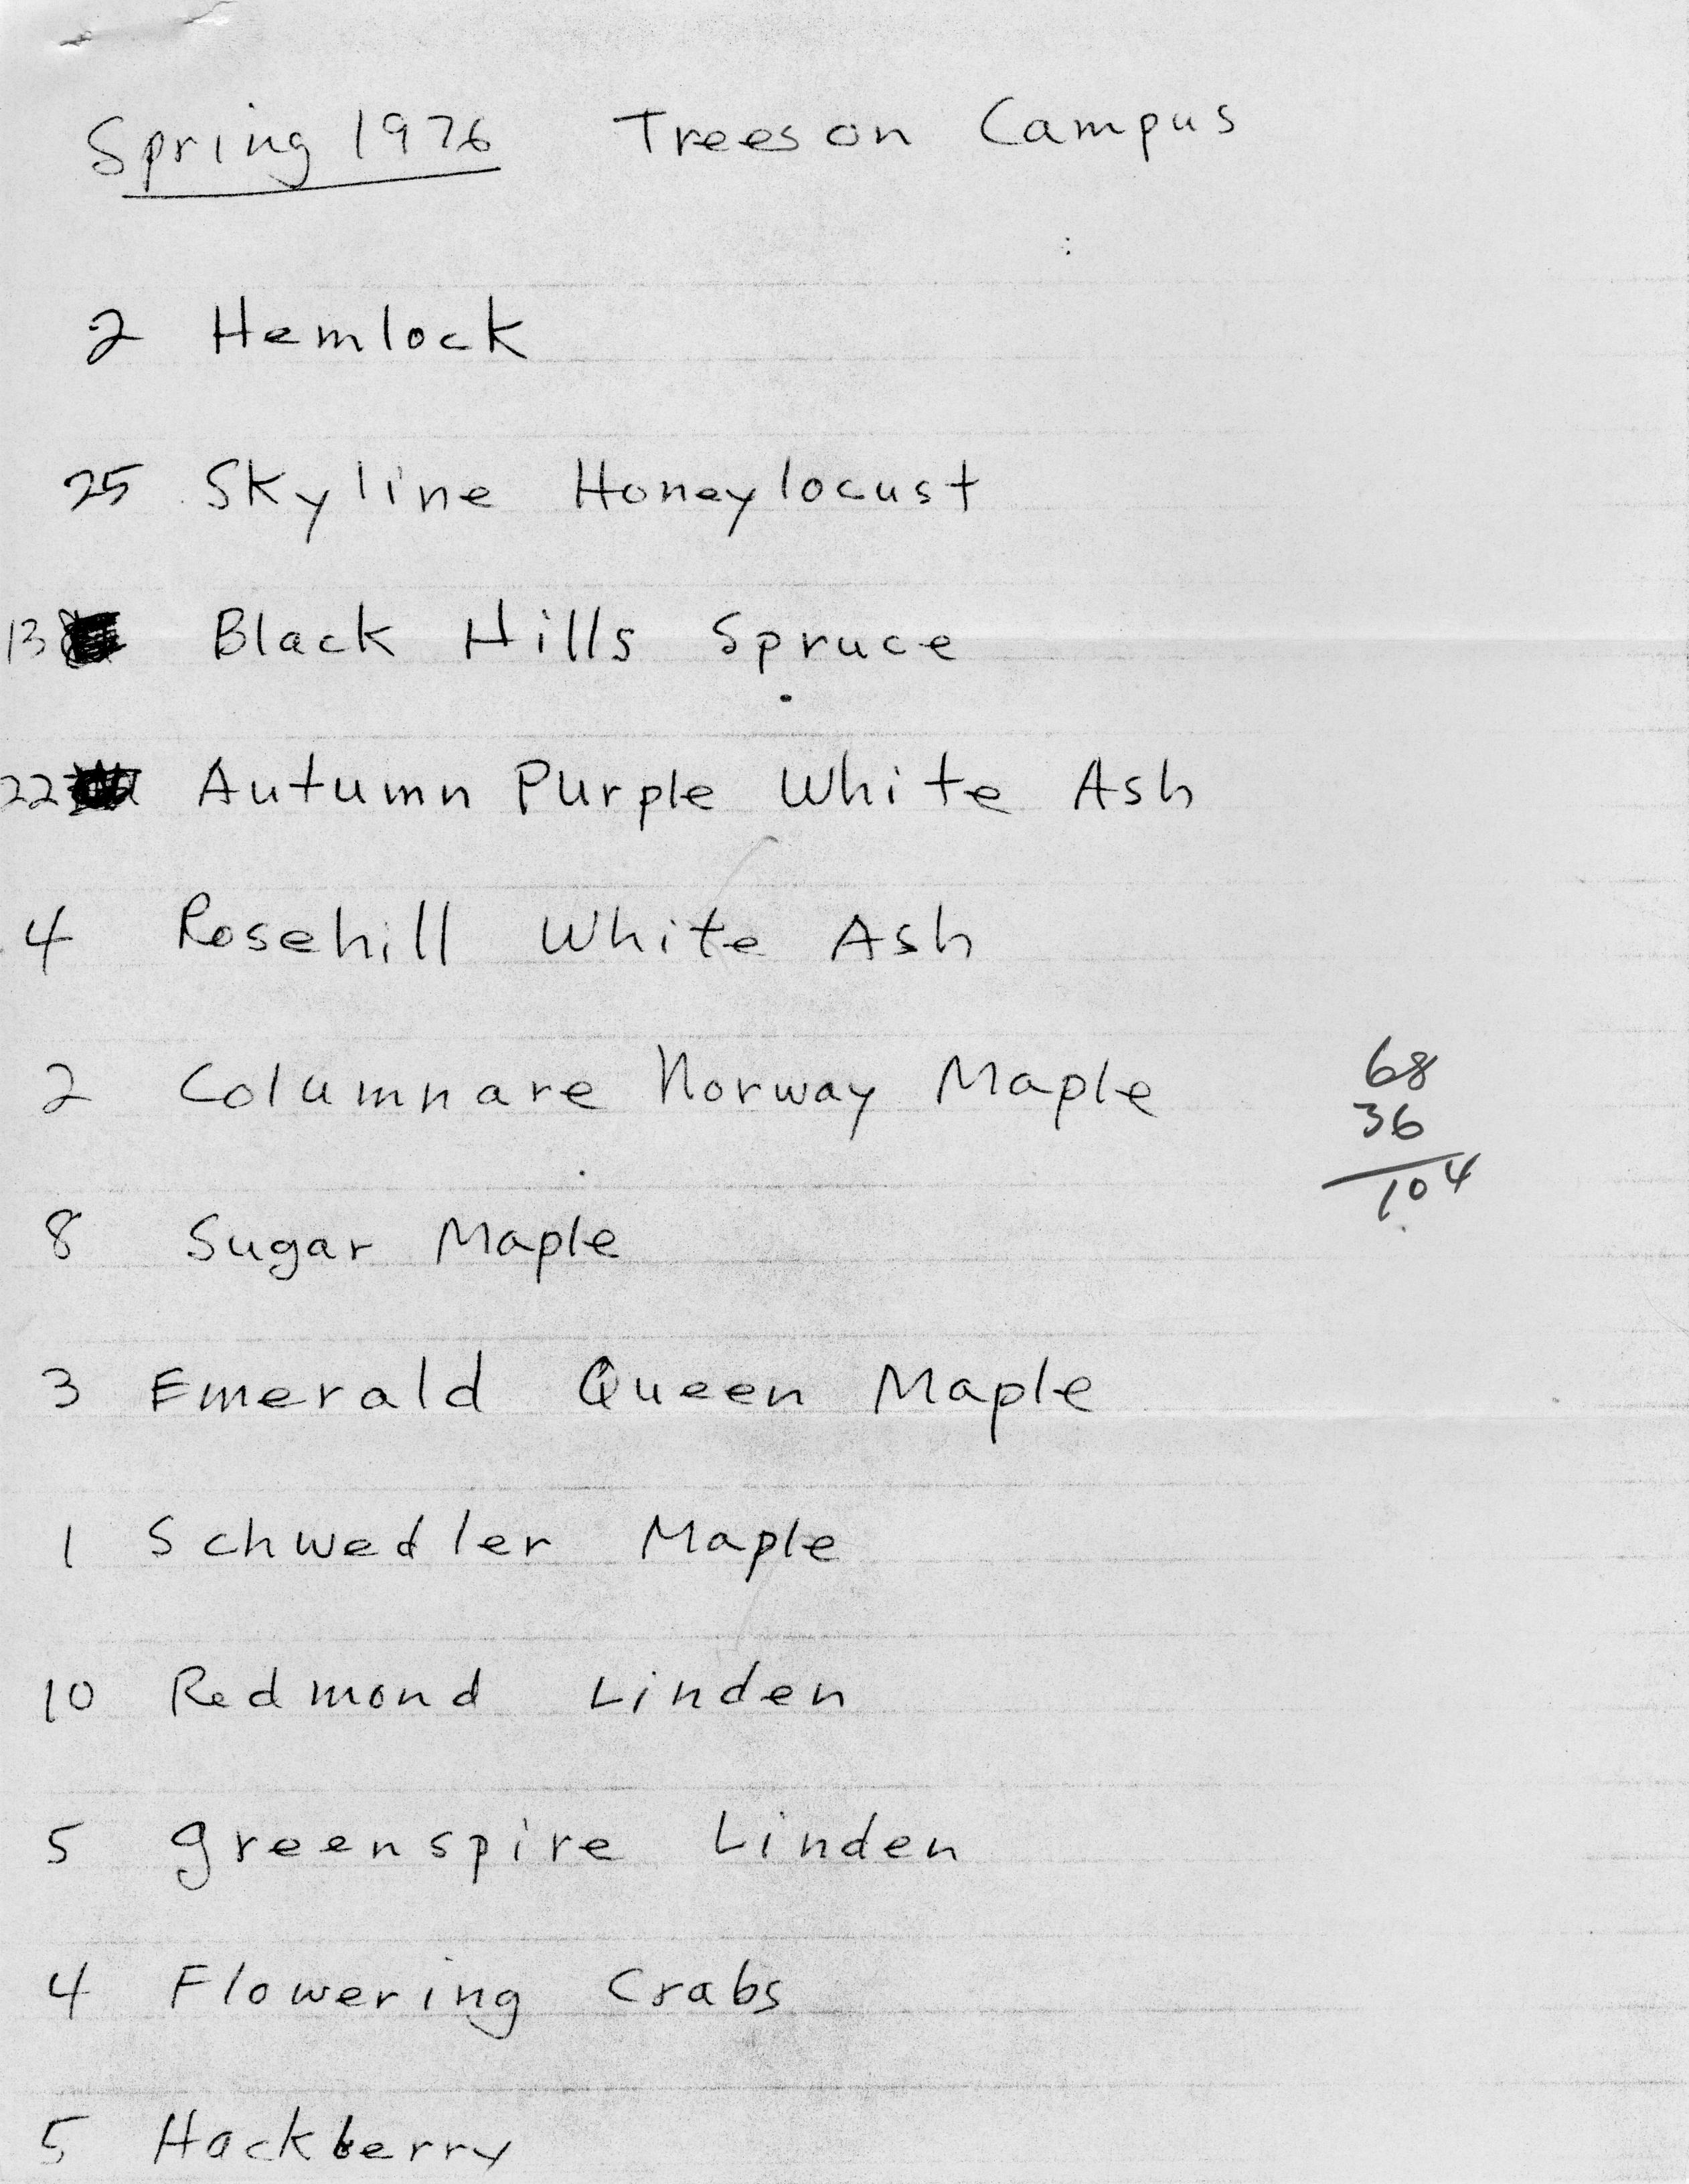 Spring 1976 Trees on Campus
2 Hemlock
25 Skyline Honeylocust
13 Black Hills Spruce
22 Autumn Purple White Ash
4 Rosehill White Ash
2 Columnare Norway Maple
68
36
104
8 Sugar Maple
3 Emerald Queen Maple
1 Schwedler Maple
10 Redmond Linden
5 Greenspire Linden
4 Flowering Crabs
5 Hackberry